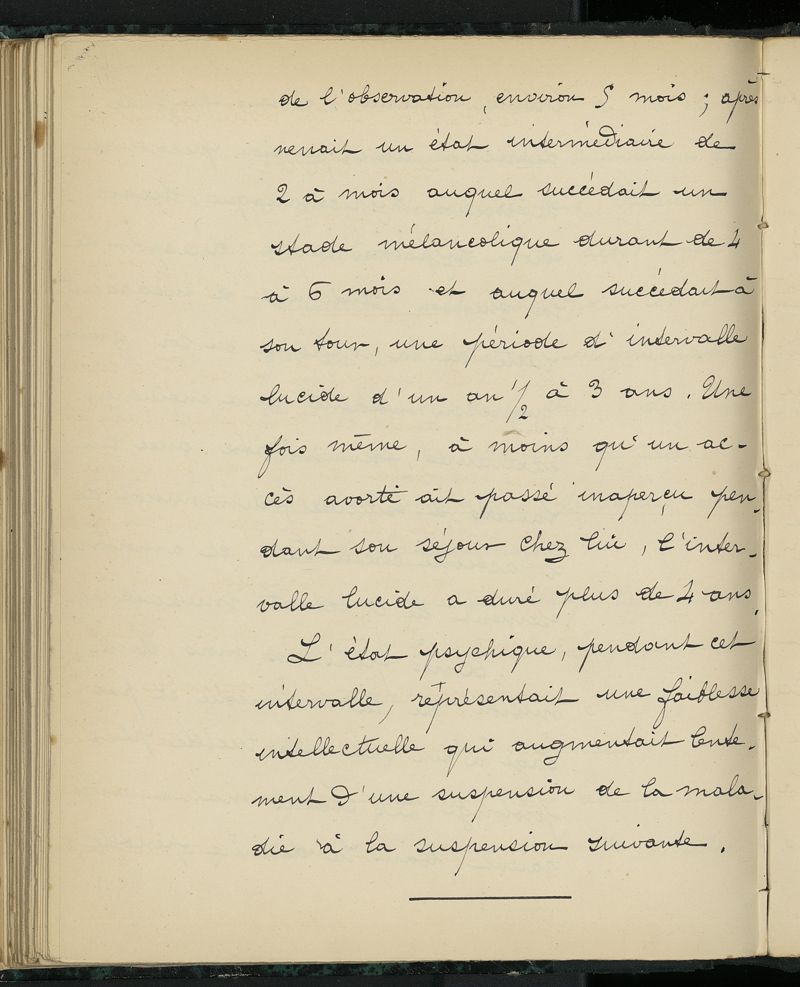 de l'observation, environ 5 mois ; après
venait un état intermédiaire de
2 à mois auquel succédait un
stade mélancolique durant de 4
à 6 mois et auquel succédait à
son tour, une période d'intervalle
lucide d'un an 1/2 à 3 ans. Une
fois même, à moins qu'un ac-
cès avorté ait passé inaperçu pen-
dant son séjour chez lui, l'inter-
valle lucide a duré plus de 4 ans.
L'état psychique, pendant cet
intervalle, représentait une faiblesse
intellectuelle qui augmentait lente-
ment d'une suspension de la mala-
die à la suspension suivante.